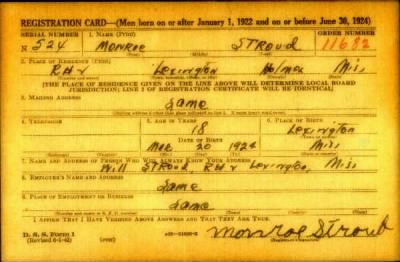 REGISTRATION CARD—(Men born on or after January 1, 1922 and on or before June 30, 1924)
SERIAL NUMBER 1. NAME (Print) ORDER NUMBER
N 524 MONROE STROUD 11682
2. PLACE OF RESIDENCE (Print)
RH Lexington Holmes Miss
[THE PLACE OF RESIDENCE GIVEN ON THE LINE ABOVE WILL DETERMINE LOCAL BOARD
JURISDICTION; LINE 2 OF REGISTRATION CERTIFICATE WILL BE IDENTICAL]
3. MAILING ADDRESS
Same
4. TELEPHONE 5. AGE IN YEARS 6. PLACE OF BIRTH
18 Lexington
DATE OF BIRTH
20 1924 Miss
7. NAME AND ADDRESS OF PERSON WHO WILL ALWAYS KNOW YOUR ADDRESS
Will STROUD, RH Lexington, Miss
8. EMPLOYER'S NAME AND ADDRESS
Same
9. PLACE OF EMPLOYMENT OR BUSINESS
Same
I AFFIRM THAT I HAVE VERIFIED ABOVE ANSWERS AND THAT THEY ARE TRUE.
D. S. S. Form 1
(Revised 6-1-42) (over) Monroe Stroud